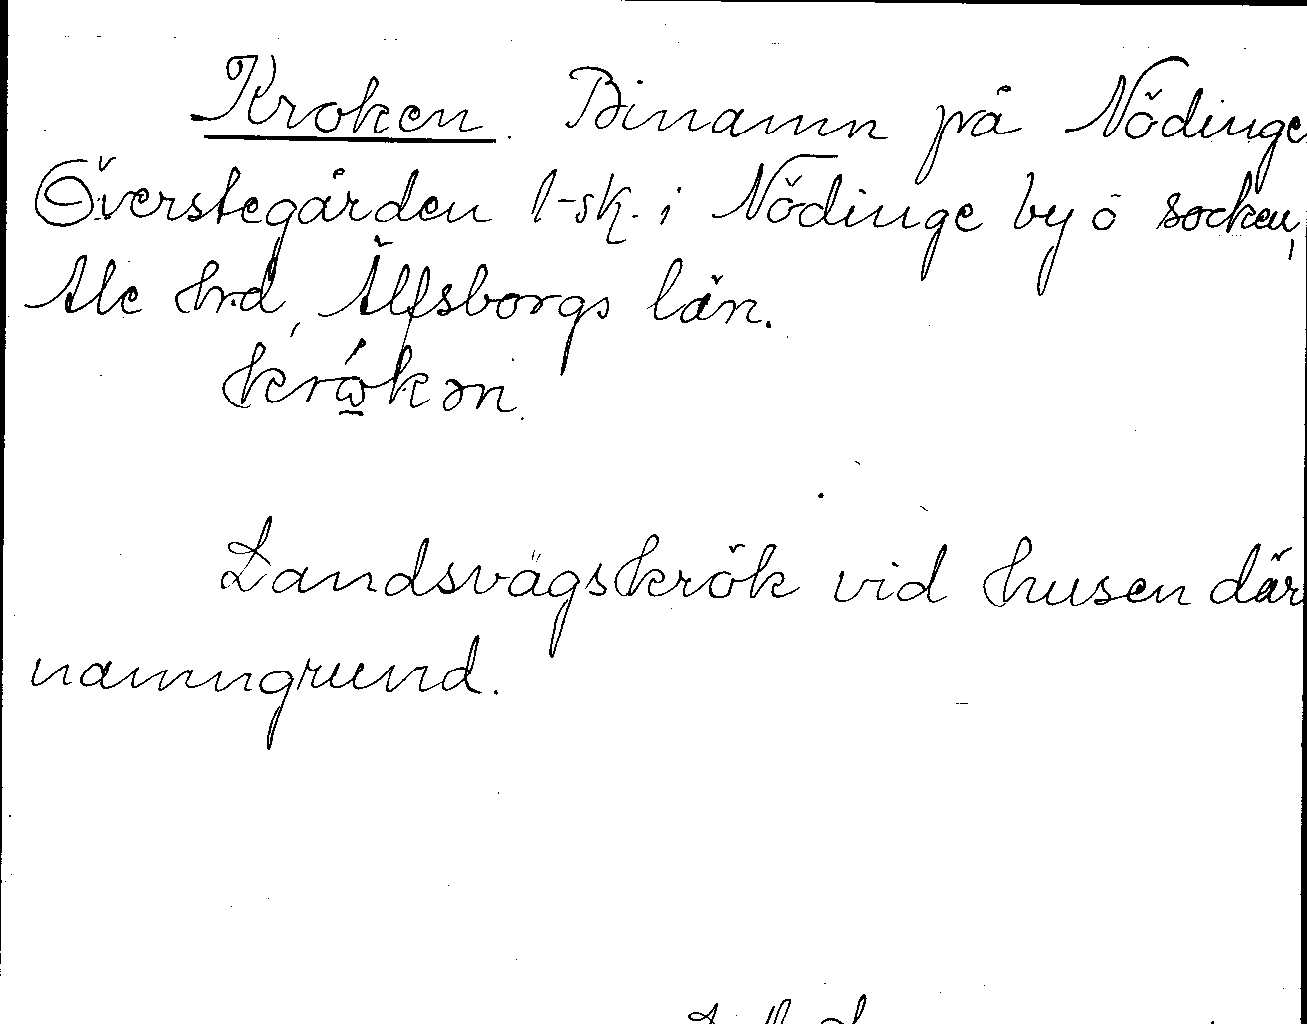 Kroken. Binamn på Nödinge
Överstegården 1-sk. i Nödinge by o socken,
Ale hrd, Älfsborgs län.
krώ̲kən.
Landsvägskrök vid husen där
namngrund.